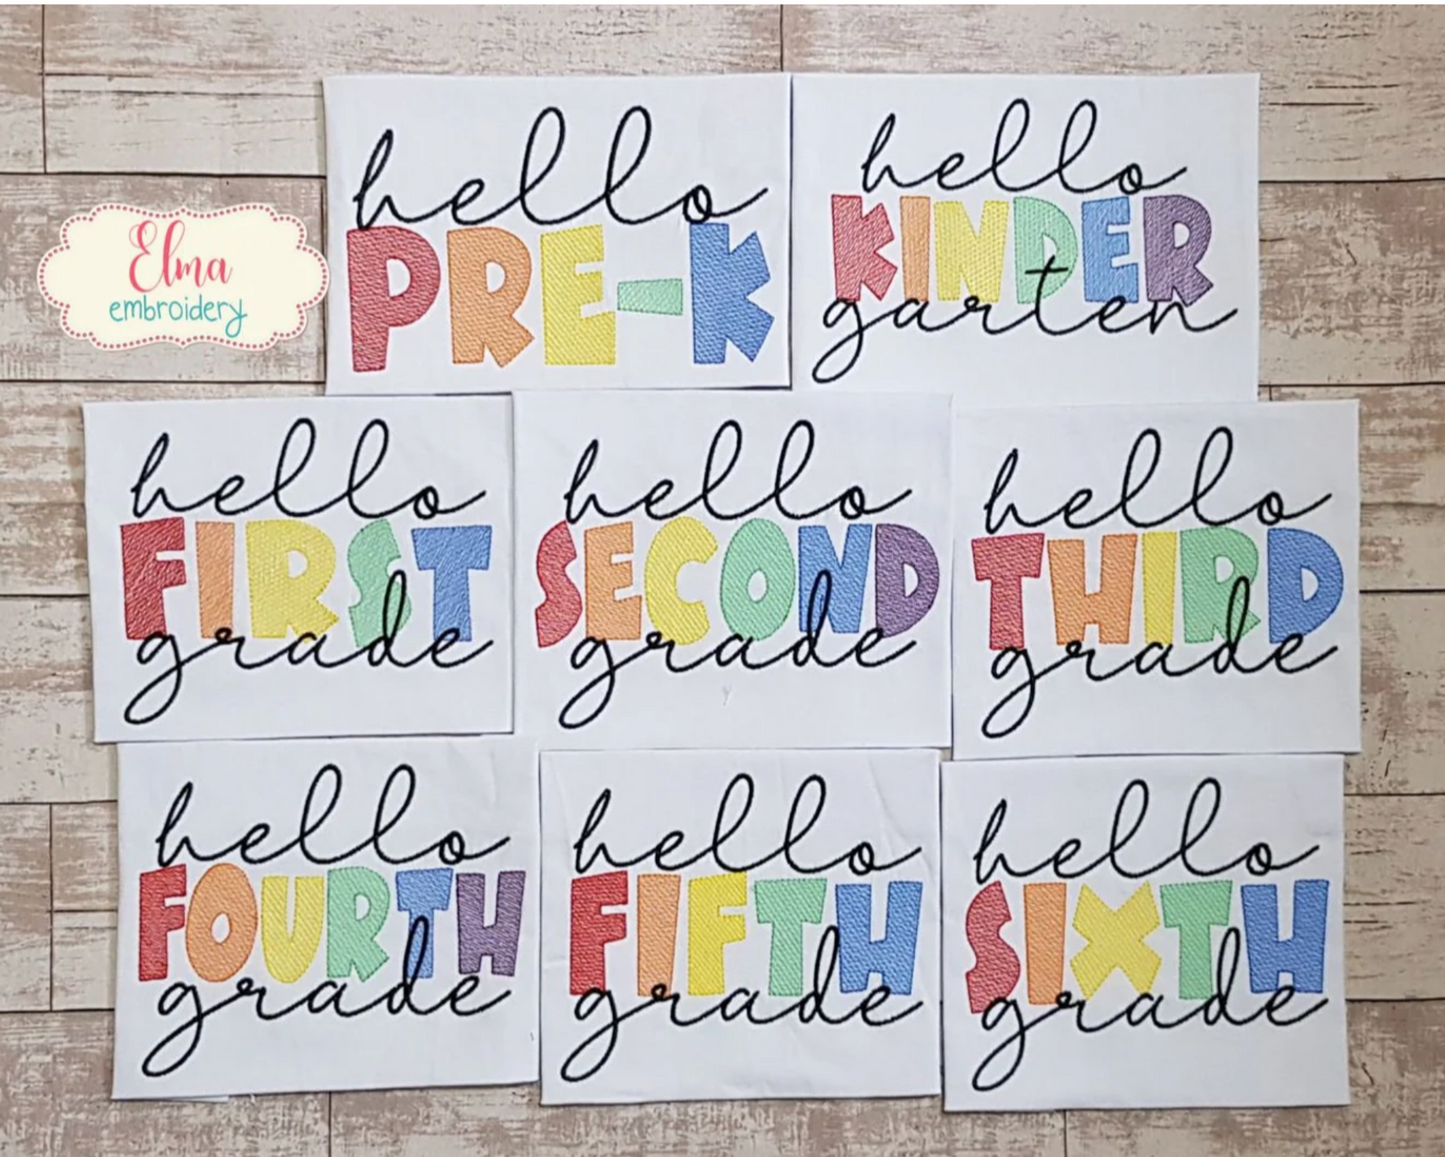 Elma
embroidery
hello
PRE-K
hello
KINDER
garten
hello
FIRST
grade
hello
SECOND
grade
hello
THIRD
grade
hello
FOURTH
grade
hello
FIFTH
grade
hello
SIXTH
grade